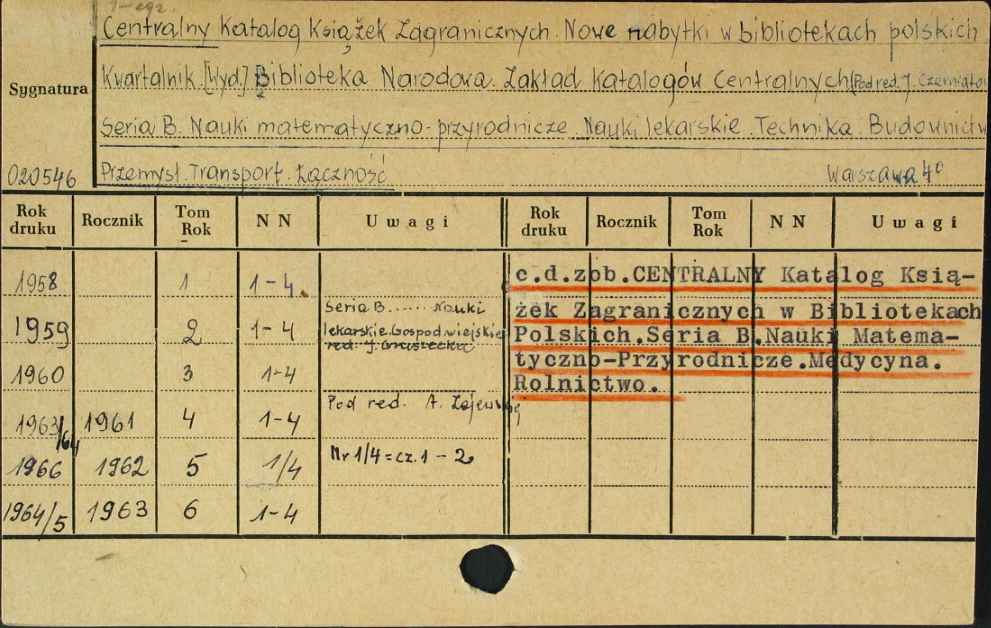 1-egz.
Centralny Katalog Książek Zagranicznych. Nowe nabytki w bibliotekach polskich
Kwartalnik. [Wyd.] Biblioteka Narodowa. Zakład Katalogów Centralnych [Pod red. J.
Sygnatura
Seria B. Nauki matematyczno-przyrodnicze. Nauki lekarskie. Technika. Budownictw
020546 Przemysł. Transport. Łączność Warszawa 4°
Rok druku Rocznik Tom Rok N N Uwagi Rok druku Rocznik Tom Rok N N Uwagi
1958 1 1-4.
1959 2 1-4 Seria B...... Nauki
lekarskie. Gospod. wiejskie
red. J.
1960 3 1-4
1963/64 1961 4 1-4 Pod red. A.
1966 1962 5 1/4 Nr 1/4 = cz. 1-2
1964/5 1963 6 1-4
c.d.zob.CENTRALNY Katalog Ksią-
żek Zagranicznych w Bibliotekach
Polskich.Seria B.Nauki Matema-
tyczno-Przyrodnicze.Medycyna.
Rolnictwo.